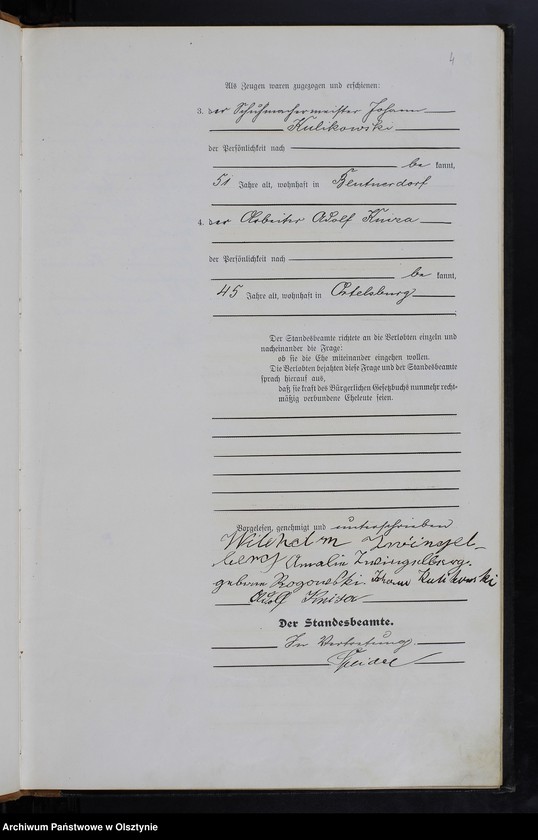 4
Als Zeugen waren zugezogen und erschienen:
3. der Schuhmachermeister Johann
Kulikowski
der Persönlichkeit nach
be kannt,
51 Jahre alt, wohnhaft in Beutnerdorf
4. der Arbeiter Adolf Kniza
der Persönlichkeit nach
be kannt,
45 Jahre alt, wohnhaft in Ortelsburg
Der Standesbeamte richtete an die Verlobten einzeln und
nacheinander die Frage:
ob sie die Ehe miteinander eingehen wollen.
Die Verlobten bejahten diese Frage und der Standesbeamte
sprach hierauf aus,
daß sie kraft des Bürgerlichen Gesetzbuchs nunmehr recht-
mäßig verbundene Eheleute seien.
Vorgelesen, genehmigt und unterschrieben
Wilhelm Zwingel-
berg Amalie Zwingelberg.
geborne Rogowski Johann Kulikowski
Adolf Kniza
Der Standesbeamte.
In Vertretung.
Archiwum Państwowe w Olsztynie